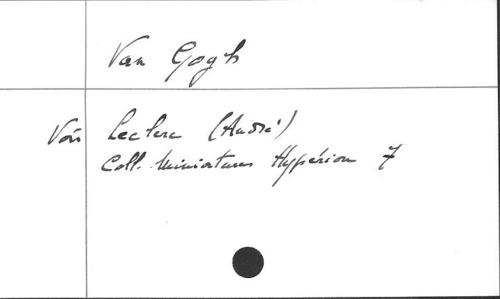 Van Gogh
Voir Leclerc (André)
Coll. Miniatures Hypérion 7